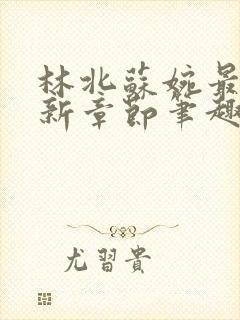 林北蘇婉最
新章節筆趣
尤習貴